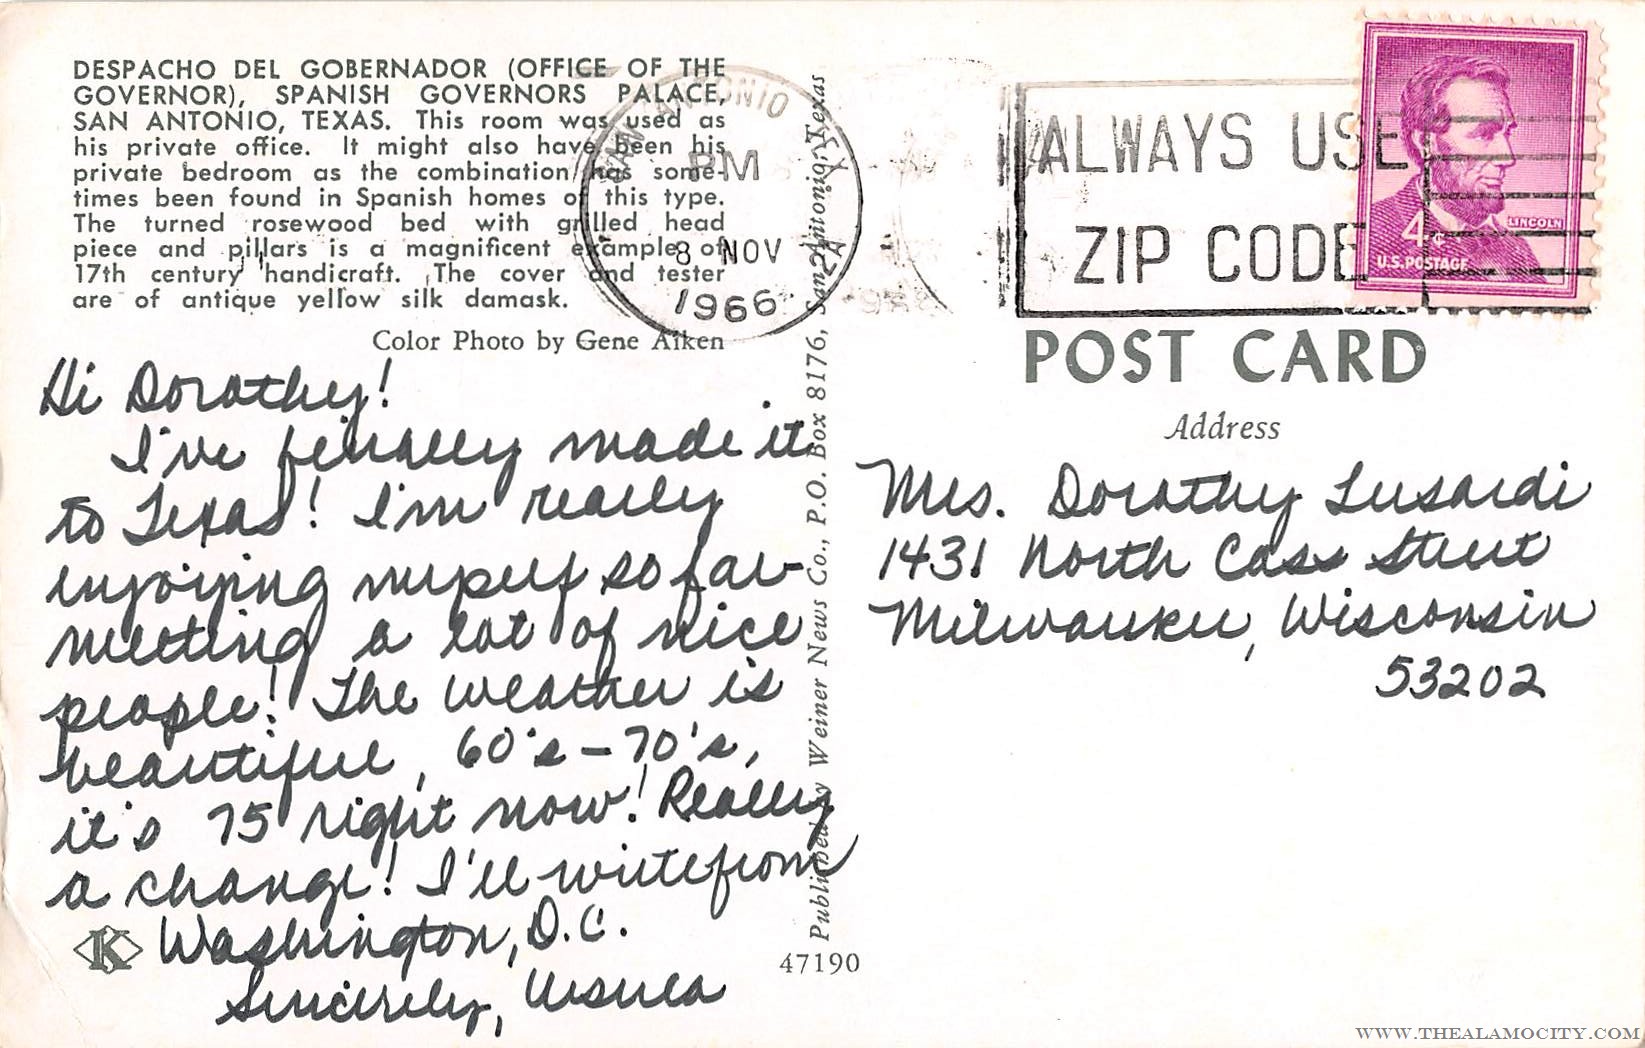 DESPACHO DEL GOBERNADOR (OFFICE OF THE
GOVERNOR), SPANISH GOVERNORS PALACE,
SAN ANTONIO, TEXAS. This room was used as
his private office. It might also have been his
private bedroom as the combination has some-
times been found in Spanish homes of this type.
The turned rosewood bed with grilled head
piece and pillars is a magnificent example of
17th century handicraft. The cover and tester
are of antique yellow silk damask.
Color Photo by Gene Aiken
Hi Dorothy!
I've finally made it
to Texas! I'm really
enjoying myself so far-
meeting a lot of nice
people! The weather is
beautiful, 60's-70's,
it's 75 right now! Really
a change! I'll write from
Washington, D.C.
Sincerely,
K
Published by Weiner News Co., P.O. Box 8176, San Antonio, Texas
47190
SAN ANTONIO, TX
PM
8 NOV
1966
ALWAYS USE
ZIP CODE
LINCOLN
4¢
U.S. POSTAGE
POST CARD
Address
Mrs. Dorothy Lusardi
1431 North Cass Street
Milwaukee, Wisconsin
53202
WWW.THEALAMOCITY.COM